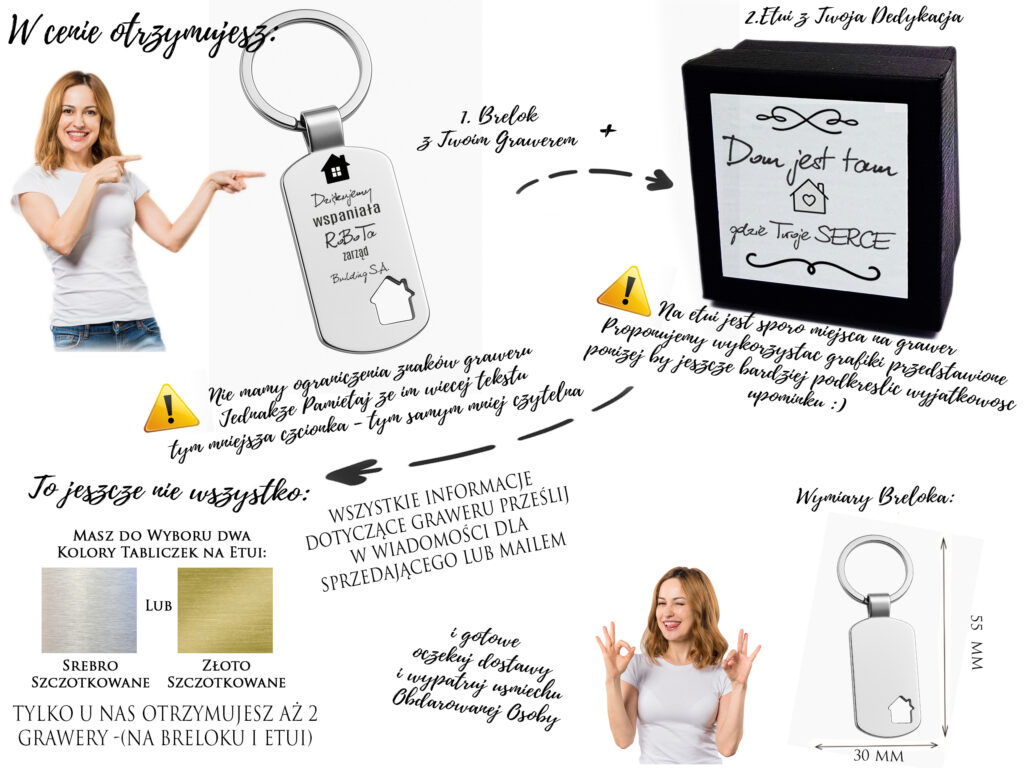 W cenie otrzymujesz:
1. Brelok
z Twoim Grawerem
+
2.Etui z Twoja Dedykacja
Dziękujemy
wspaniała
RoBoTa
zarząd
Building S.A.
Dom jest tam
gdzie Twoje SERCE
Nie mamy ograniczenia znaków graweru
Jednakże Pamietaj ze im wiecej tekstu
tym mniejsza czcionka - tym samym mniej czytelna
Na etui jest sporo miejsca na grawer
Proponujemy wykorzystac grafiki przedstawione
poniżej by jeszcze bardziej podkreslic wyjatkowosc
upominku :)
To jeszcze nie wszystko:
Masz do Wyboru dwa
Kolory Tabliczek na Etui:
Lub
Srebro
Szczotkowane
Złoto
Szczotkowane
TYLKO U NAS OTRZYMUJESZ AŻ 2
GRAWERY -(NA BRELOKU I ETUI)
WSZYSTKIE INFORMACJE
DOTYCZĄCE GRAWERU PRZEŚLIJ
W WIADOMOŚCI DLA
SPRZEDAJĄCEGO LUB MAILEM
i gotowe
oczekuj dostawy
i wypatruj usmiechu
Obdarowanej Osoby
Wymiary Breloka:
55 MM
30 MM